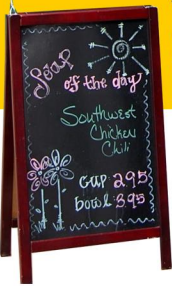 Soup
of the day
Southwest
Chicken
Chili
cup 2.95
bowl 3.95